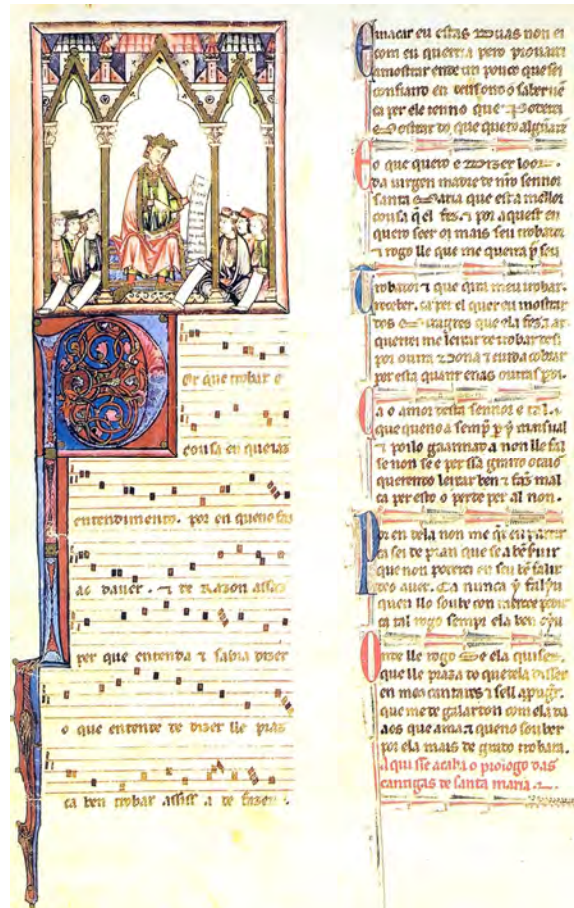 Por que trobar e
cousa en que iaz
entendimento. por en queno faz
ao dauer. ⁊ de razon assaz
per que entenda ⁊ sabia dizer
o que entende de dizer lle praz
ca ben trobar assi s a de fazer.
E macar eu estas duas non ei
com eu querria pero prouarei
a mostrar ende un pouco que sei
confiand en deus ond o saber uen
ca per ele tenno que poderei
mostrar do que quero alguna ren
E o que quero e dizer loor.
da uirgen madre de nro sennor
santa maria que est a mellor
cousa q̄ el fez. ⁊ por aquest eu
quero seer oi mais seu trobador
⁊ rogo lle que me queira p̄ seu
Trobador ⁊ que queira meu trobar.
reçeber. ca per el quer eu mostrar
dos miragres que ela fez. ⁊ ar
querrei me leixar de trobar desi
por outra dona ⁊ cuid a cobrar
per esta quant enas outras perdi.
Ca o amor desta sennor e tal.
que queno a semp̄ p̄ y mais ual
⁊ poilo gaannad a non lle fal
se non se e per sa grand ocaion
querendo leixar ben ⁊ fazer mal
ca per esto o perde per al non.
Por en dela non me q̄r eu partir
ca sei de pran que se a bē seruir
que non poderei en seu bē falir
de o auer. ca nunca y faliu
quen llo soube con merçee pedir
ca tal rogo sempr ela ben oyu
Onde lle rogo se ela quiser.
que lle praza do que dela disser
en meus cantares ⁊ se ll aprouguer.
que me de galardon com ela da
aos que ama ⁊ queno souber
por ela mais de grado trobara.
Aqui sse acaba o prologo das
cantigas de santa maria.